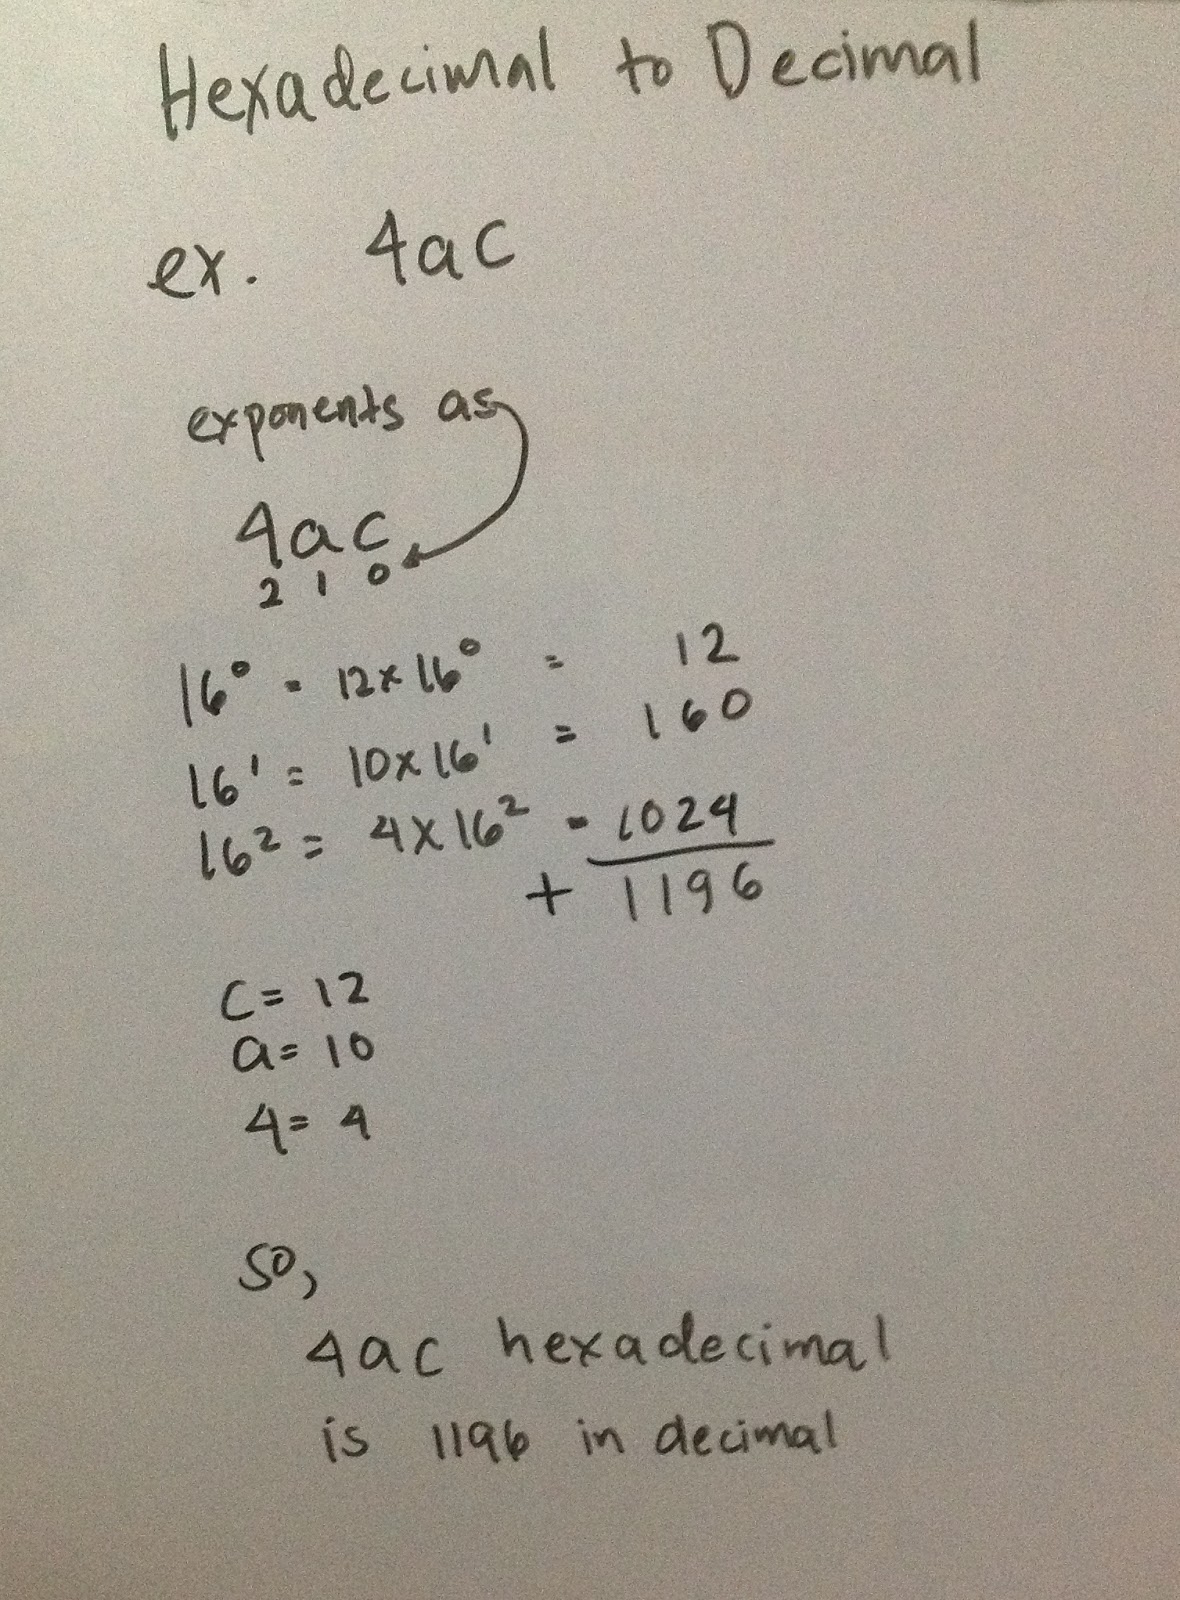 Hexadecimal to Decimal
ex. 4ac
exponents as
4ac
2 1 0
16⁰ = 12x16⁰ = 12
16¹ = 10x16¹ = 160
16² = 4x16² = 1024
+ 1196
C= 12
a= 10
4= 4
so,
4ac hexadecimal
is 1196 in decimal